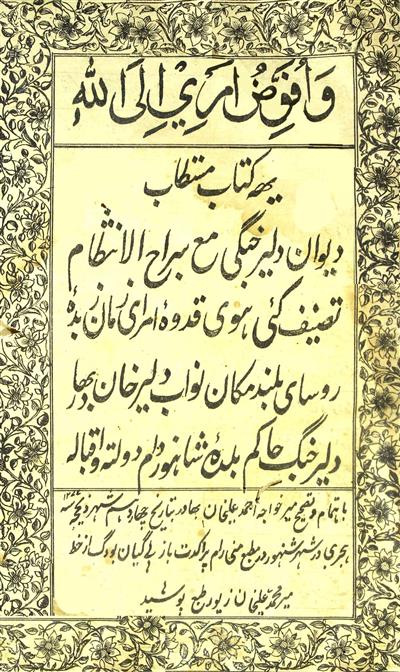 وَأُفَوِّضُ أَمْرِي إِلَى اللهِ
یھہ کتاب مستطاب
دیوان دلیر جنگی مع سراج الانتظام
تصنیف کئی ہوی قدوۂ امرای زمان زبدۂ
روسای بلند مکان نواب دلیر خان بہادر
دلیر جنگ حاکم بلدۂ شاہنور دام دولتہ و اقبالہ
باہتمام و تصحیح میر خواجہ احمد علیخان بہادر بتاریخ چہاردہم شہر ذیحجہ
ہجری در شہر شہنور در مطبع منی رام پراکرت بازی گیان بودک از خط
میر محمد علیخان زیور طبع پوشید